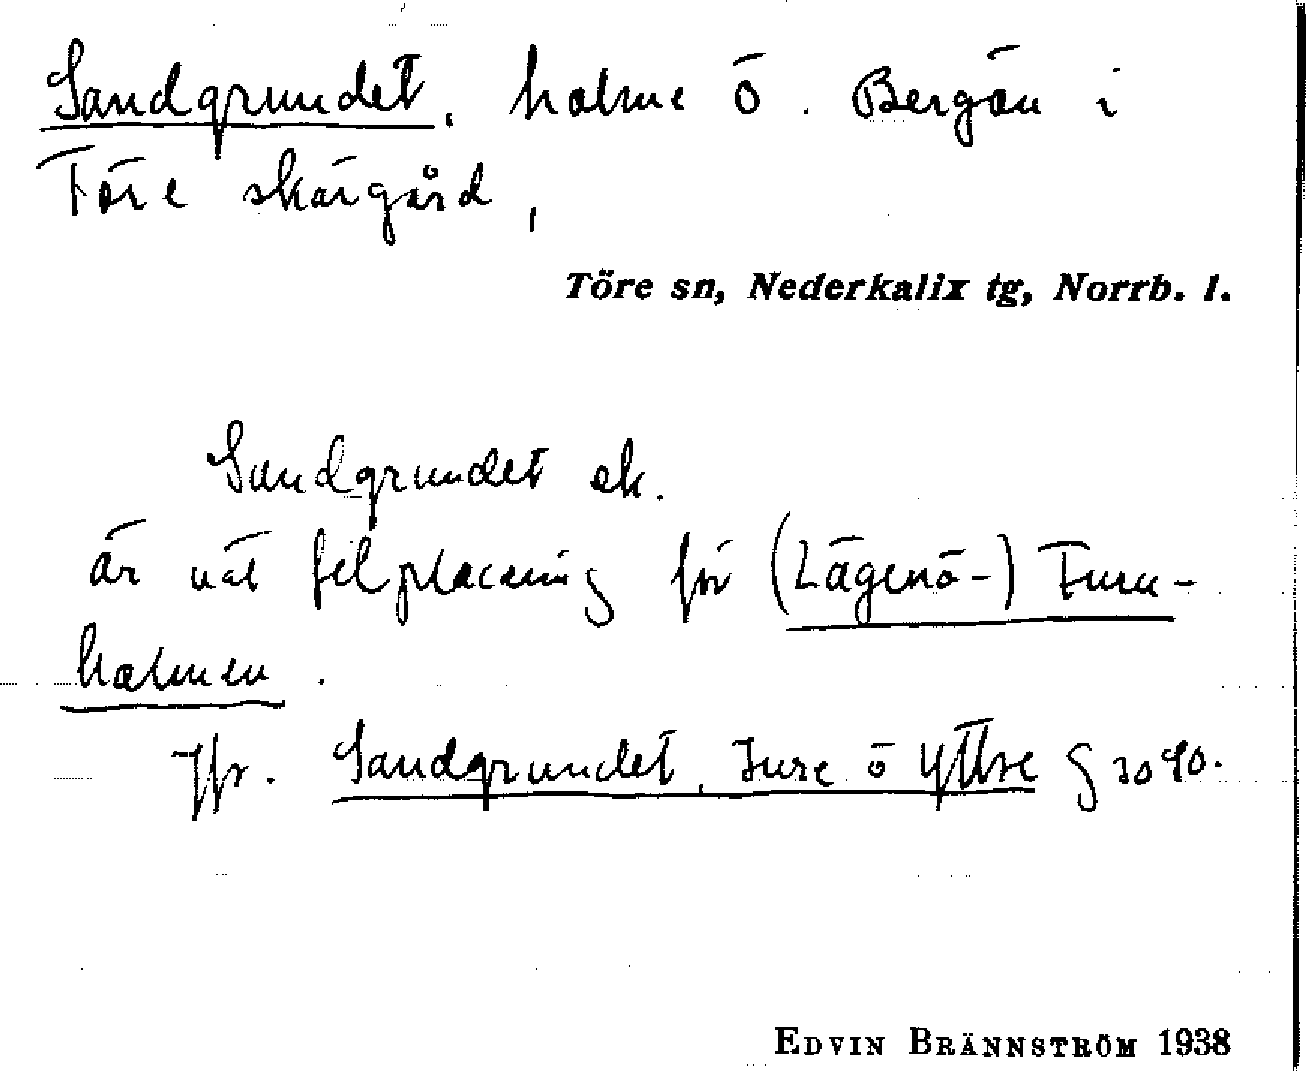 Sandgrundet, holme ö. Bergön i
Töre skärgård,
Töre sn, Nederkalix tg, Norrb. l.
Sandgrundet ek.
är nät felplacering för (Lägenö-) Furu-
holmen.
Jfr. Sandgrundet, Inre o Yttre § 2090.
EDVIN BRÄNNSTRÖM 1938